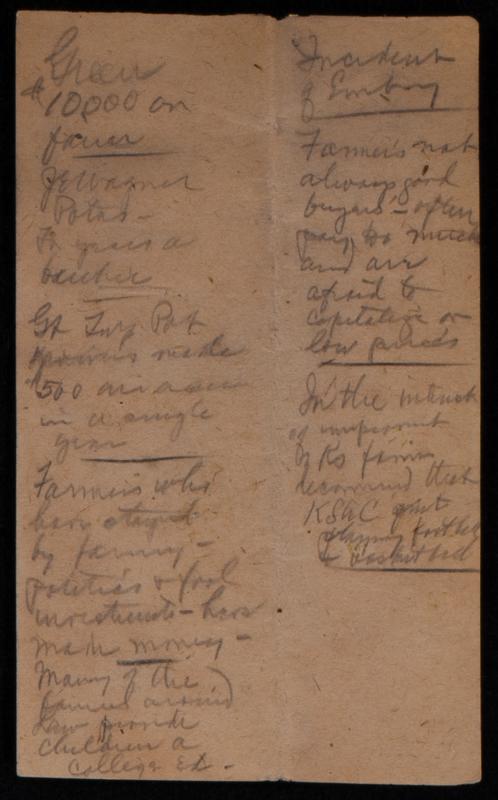 Green
$10,000 on
farm
J E Wagner
Potas -
a
bachelor
Gt Pot
growers made
$500 an acre
in a single
year
Farmers who
have stayed
by farming -
politics & fool
investments - have
made money -
Many of the
farmers around
Law provide
children a
college Ed -
Incident
of Embry
Farmers not
always good
buyers - often
pay too much
and are
afraid to
capitalize on
low prices
In the interest
of improvement
of Ks farm
recommend that
KSAC quit
playing football
& basket ball